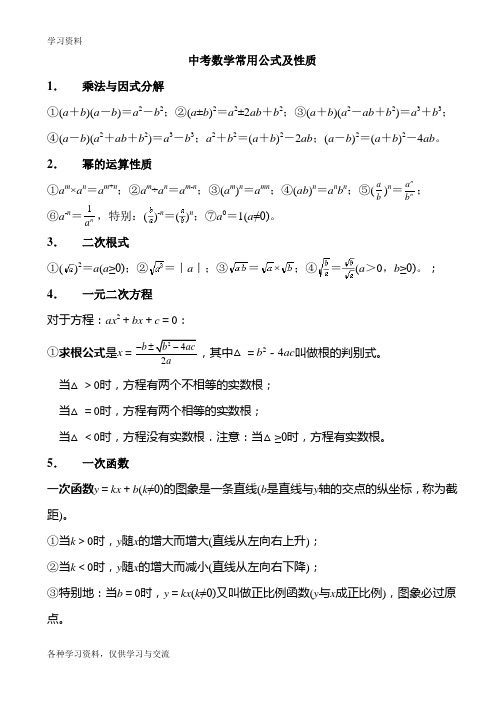 学习资料
中考数学常用公式及性质
1. 乘法与因式分解
①(a+b)(a-b)=a²-b²；②(a±b)²=a²±2ab+b²；③(a+b)(a²-ab+b²)=a³+b³；
④(a-b)(a²+ab+b²)=a³-b³；a²+b²=(a+b)²-2ab；(a-b)²=(a+b)²-4ab。
2. 幂的运算性质
①aᵐ×aⁿ=aᵐ⁺ⁿ；②aᵐ÷aⁿ=aᵐ⁻ⁿ；③(aᵐ)ⁿ=aᵐⁿ；④(ab)ⁿ=aⁿbⁿ；⑤(a/b)ⁿ=aⁿ/bⁿ；
⑥a⁻ⁿ=1/aⁿ，特别：(b/a)⁻ⁿ=(a/b)ⁿ；⑦a⁰=1(a≠0)。
3. 二次根式
①(√a)²=a(a≥0)；②√a²=|a|；③√ab=√a×√b；④√(b/a)=√b/√a(a>0，b≥0)。；
4. 一元二次方程
对于方程：ax²+bx+c=0：
①求根公式是x=(-b±√(b²-4ac))/2a，其中△=b²-4ac叫做根的判别式。
当△>0时，方程有两个不相等的实数根；
当△=0时，方程有两个相等的实数根；
当△<0时，方程没有实数根．注意：当△≥0时，方程有实数根。
5. 一次函数
一次函数y=kx+b(k≠0)的图象是一条直线(b是直线与y轴的交点的纵坐标，称为截
距)。
①当k>0时，y随x的增大而增大(直线从左向右上升)；
②当k<0时，y随x的增大而减小(直线从左向右下降)；
③特别地：当b=0时，y=kx(k≠0)又叫做正比例函数(y与x成正比例)，图象必过原
点。
各种学习资料，仅供学习与交流